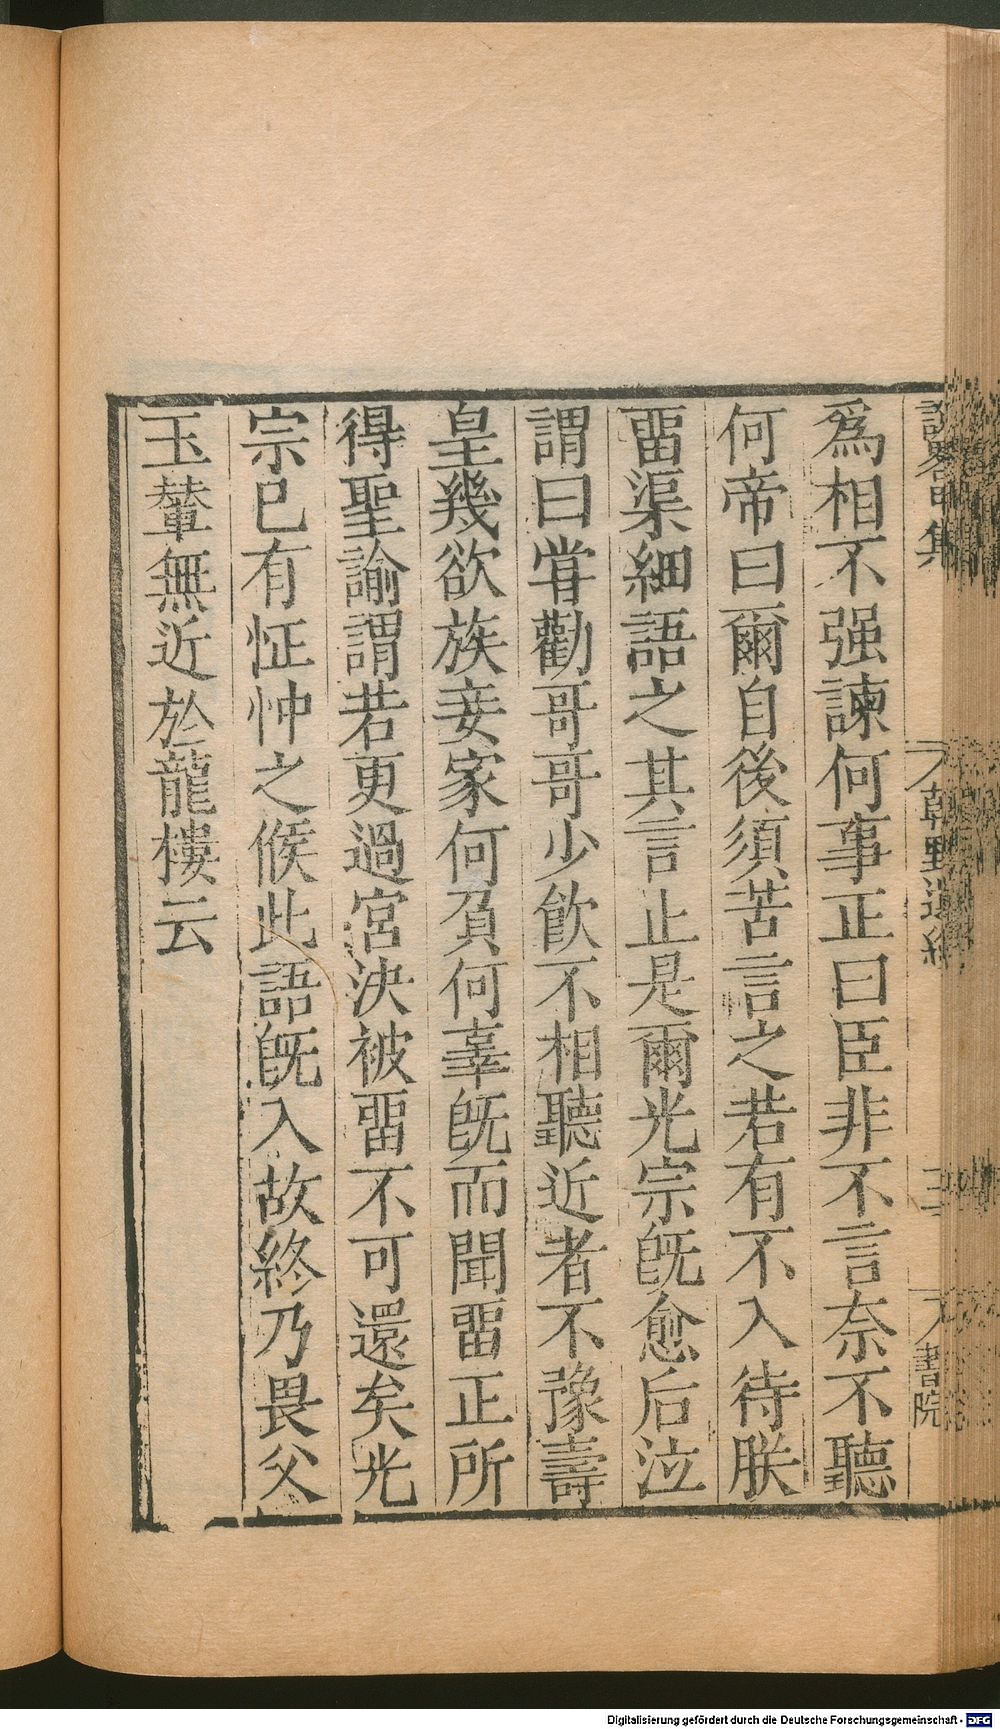 爲相不强諫何事正曰臣非不言奈不聽
何帝曰爾自後須苦言之若有不入待朕
畱渠細語之其言止是爾光宗旣愈后泣
謂曰甞勸哥哥少飮不相聽近者不豫壽
皇幾欲族妾家何負何辜旣而聞畱正所
得聖諭謂若更過宮決被畱不可還矣光
宗已有怔忡之候此語旣入故終乃畏父
玉輦無近於龍樓云
說畧甲集
朝野遺紀
書院
Digitalisierung gefördert durch die Deutsche Forschungsgemeinschaft - DFG